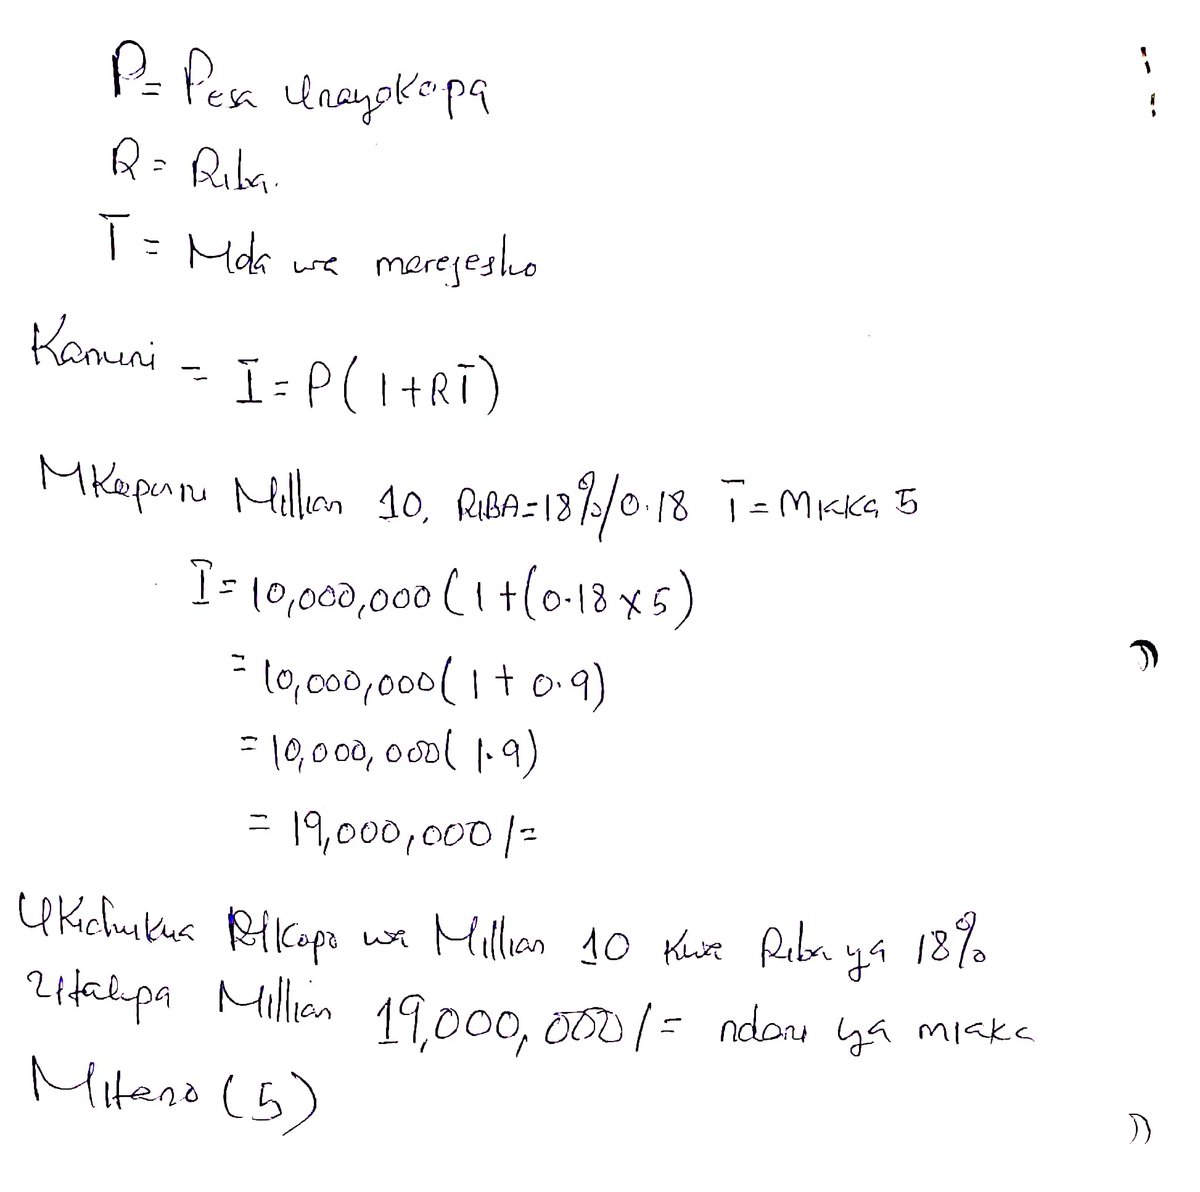 P= Pesa Unayokopa
R = Riba.
T = Mda wa marejesho
Kanuni = I = P(1+RT)
MKapuru Millian 10, RIBA=18%/0.18 T = Miaka 5
I= 10,000,000 (1+(0.18 x 5)
= 10,000,000 (1 + 0.9)
= 10,000,000 (1.9)
= 19,000,000/=
Ukichukua Mkopo wa Millian 10 Kwa Riba ya 18%
Utalipa Millian 19,000,000/= ndani ya miaka
Mitano (5)